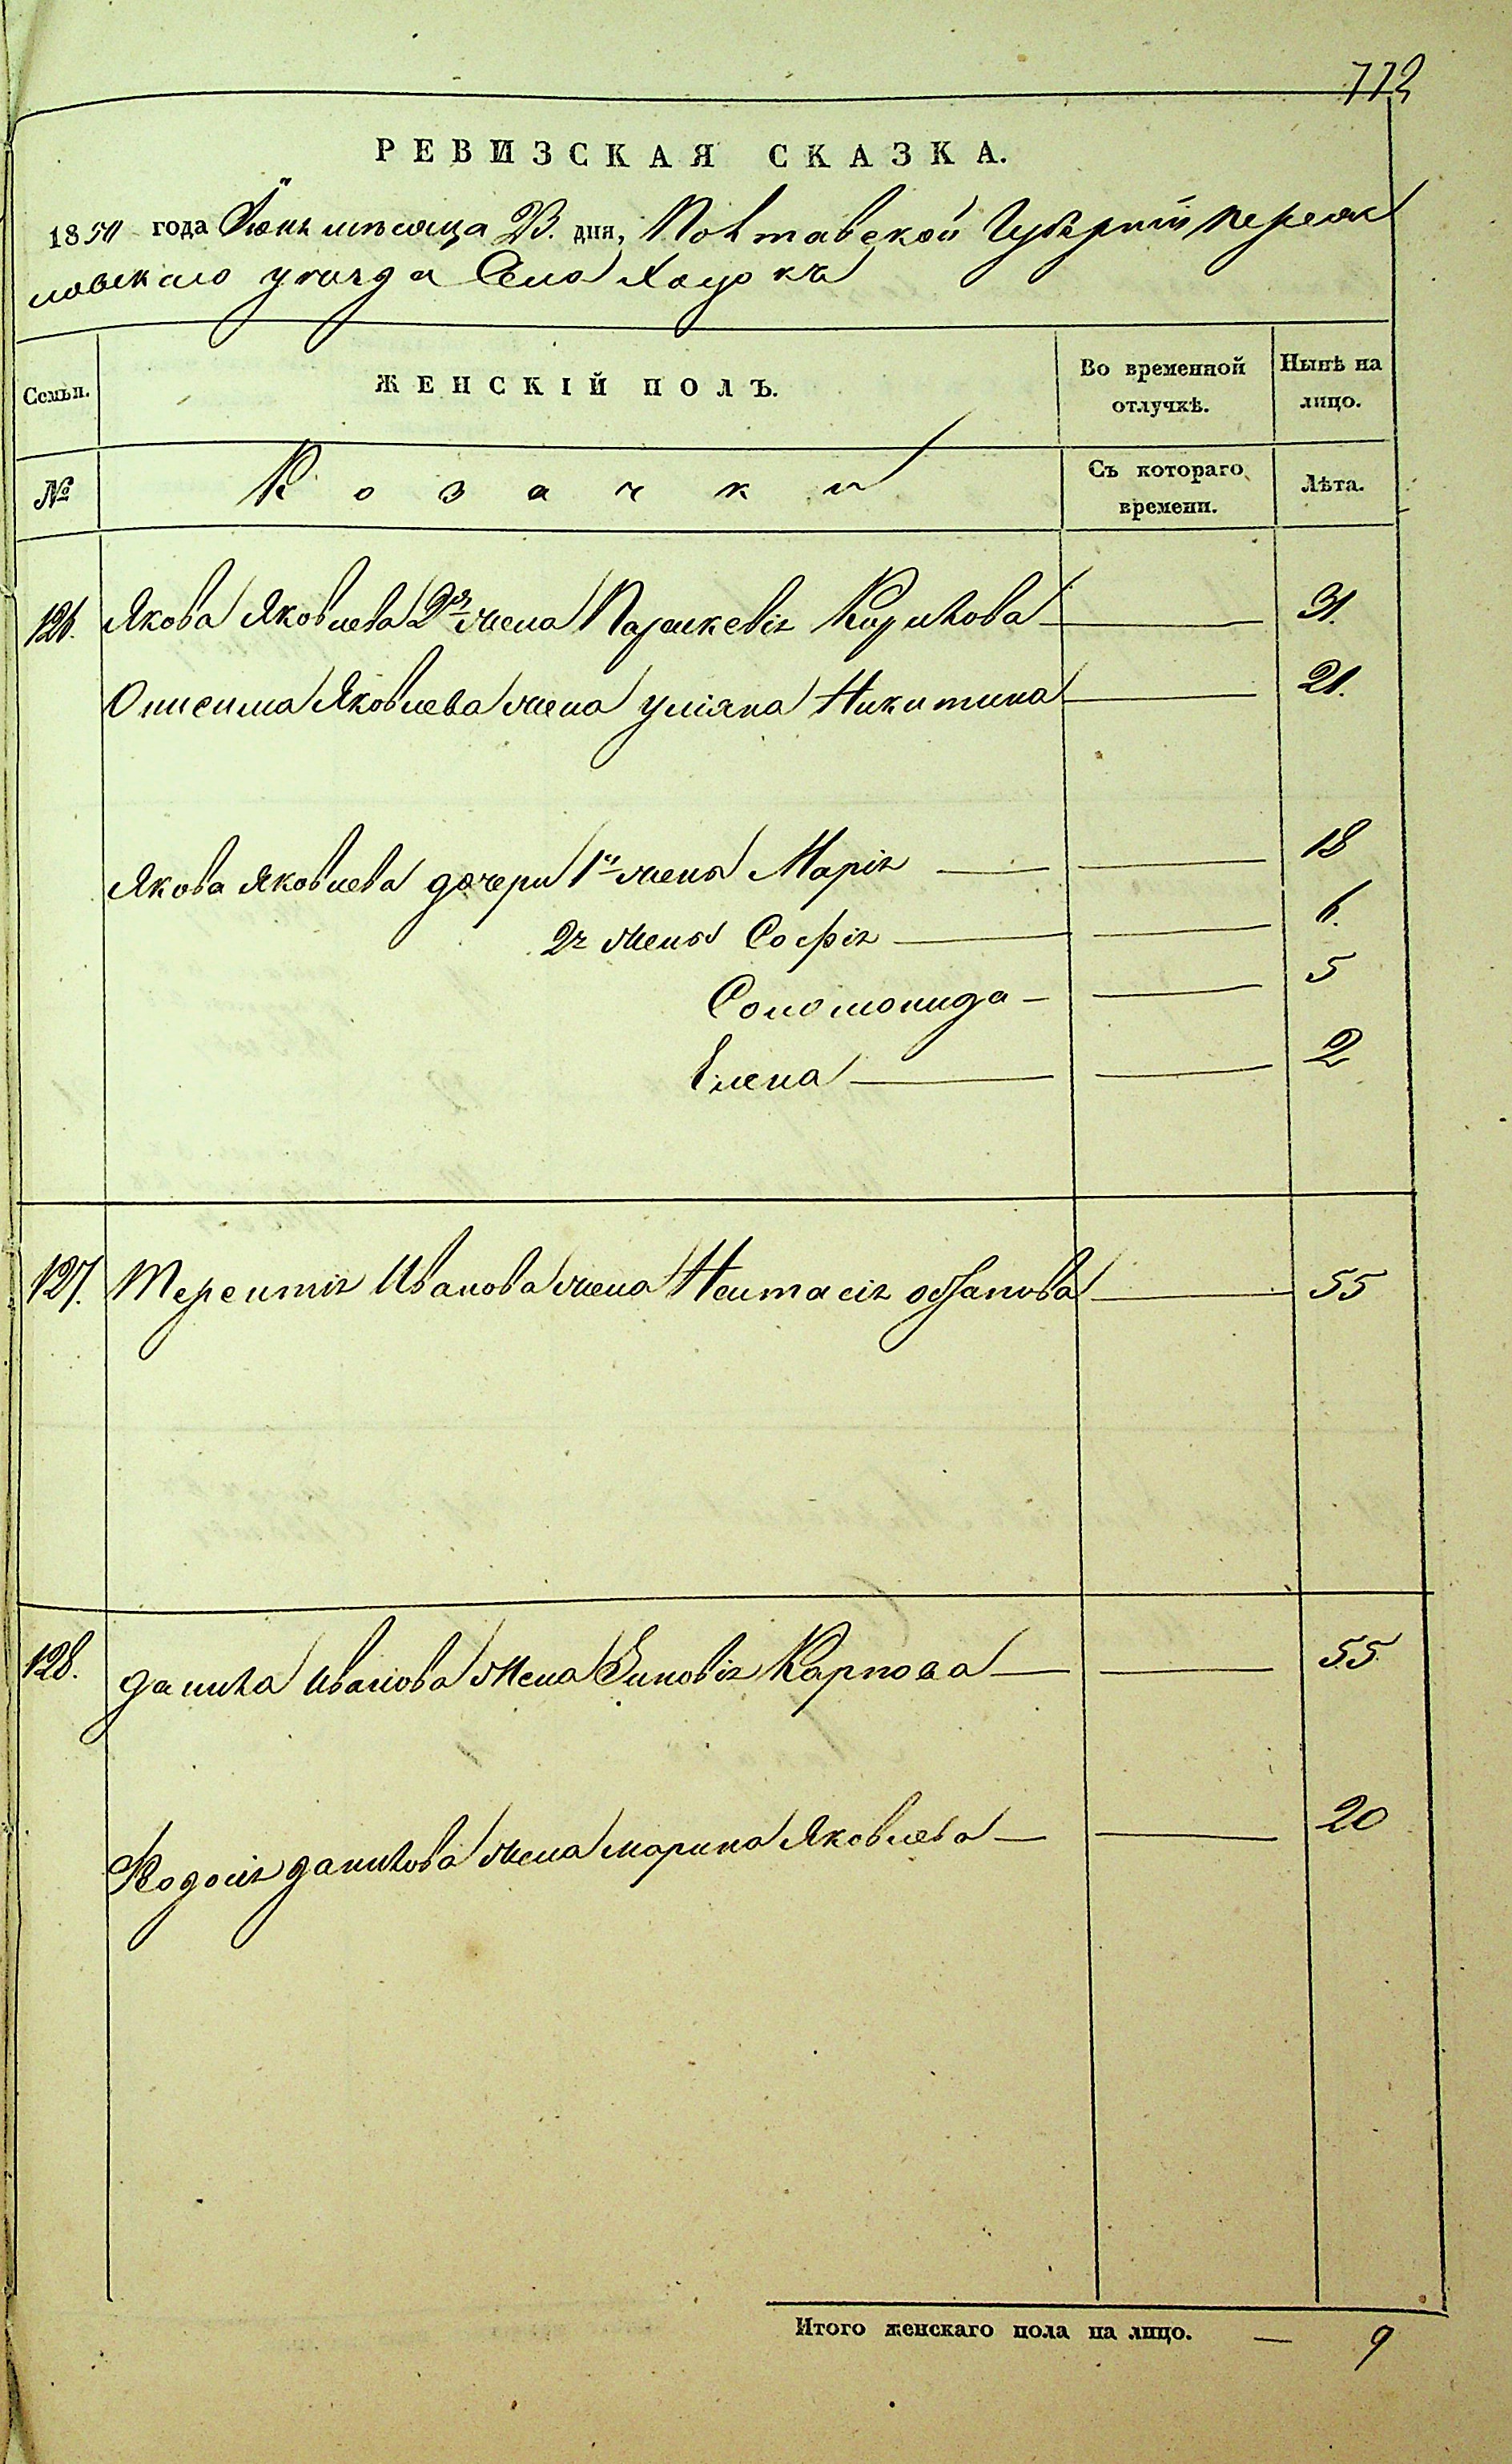 772
РЕВИЗСКАЯ СКАЗКА.
1850 года Іюня мѣсяца 23. дня, Полтавской Губерніи Переяс
ловскаго уѣзда Села Хоцокъ
Семьи. ЖЕНСКІЙ ПОЛЪ. Во временной отлучкѣ. Нынѣ на лицо.
№ Козачки Съ котораго времени. Лѣта.
126. Якова Яковлева 2я жена Параскевія Кирилова 31.
Онисима Яковлева жена Уліяна Никитина 21.
Якова Яковлева дочери 1й жены Марія 18
2й жены Софія 6.
Соломонида 5
Елена 2
127. Терентія Иванова жена Настасія 55
128. Данила Иванова жена Зиновія Карпова 55
Ѳодосія Данилова жена Марина Яковлева 20
Итого женскаго пола на лицо. — 9